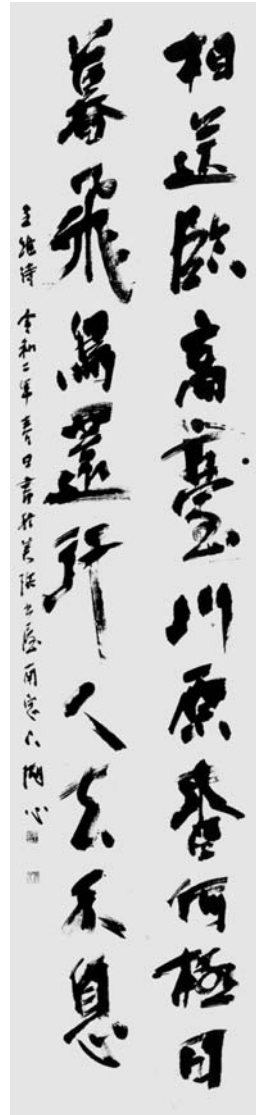 相送臨高臺川原杳何極日
暮飛鳥還行人去不息
王維詩 令和二年春日書於 南窓下 湖心